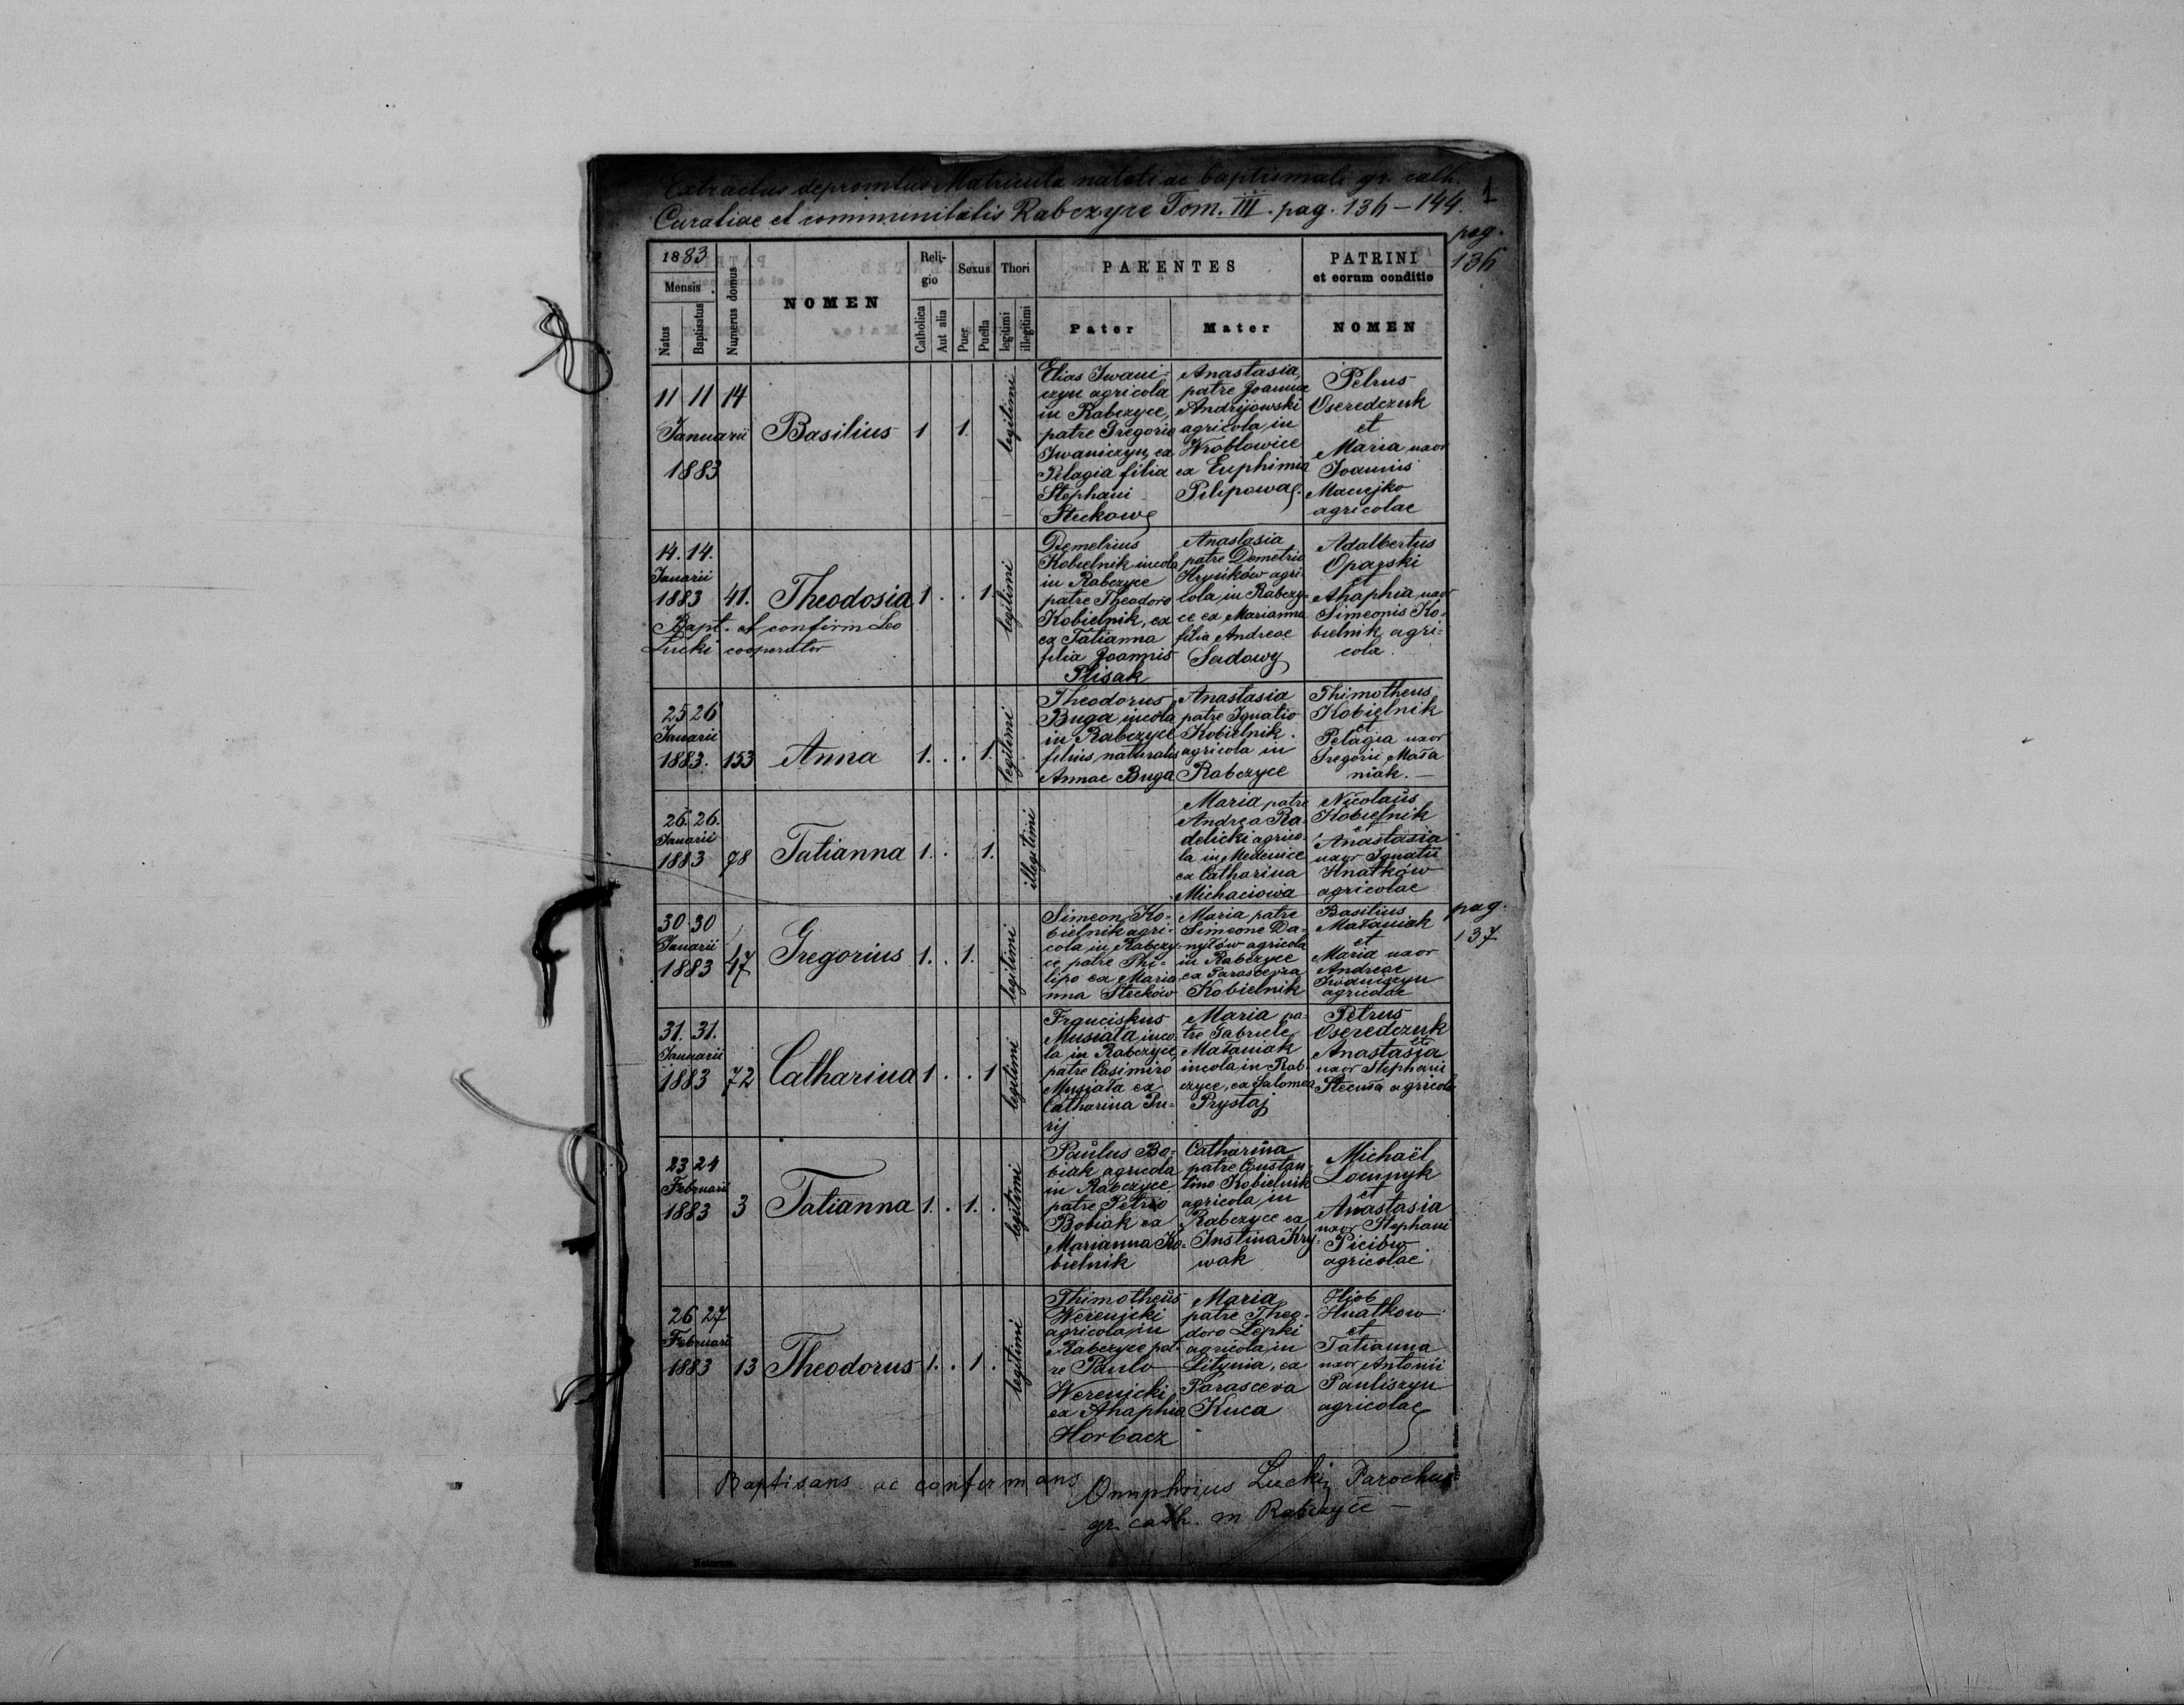 Extractus depromtus Matricula natali ac baptismali gr. cath.
Curatiae et communitatis Rabczyce Tom. III. pag. 136 – 144.
1
pag.
136
1883
Mensis
Natus
Baptisatus
Numerus domus
NOMEN
Reli-
gio
Catholica
Aut alia
Sexus
Puer
Puella
Thori
legitimi
illegitimi
PARENTES
Pater
Mater
PATRINI
et eorum conditio
NOMEN
11 11 14
Januarii
1883
Basilius
1 1.
legitimi
Elias Iwani-
czyn agricola
in Rabczyce,
patre Gregorio
Iwaniczyn, ex
Pelagia filia
Stephani
Steckow
Anastasia,
patre Joanne
Andrijowski
agricola in
Wroblowice
ex Euphimia
Pilipowa.
Petrus
Oseredczuk
et
Maria uxor
Joannis
Maciejko
agricolae
14. 14.
Januarii
1883 41.
Bapt. et confirm Leo
Łucki cooperator
Theodosia
1 . . 1.
legitimi
Demetrius
Kobielnik incola
in Rabczyce
patre Theodoro
Kobielnik, ex
ex Tatianna
filia Joannis
Plisak
Anastasia
patre Demetrio
Hryńków agri-
cola, in Rabczy-
ce ex Marianna
filia Andreae
Sadowy
Adalbertus
Oparski
et
Ahaphia uxor
Simeonis Ko-
bielnik agri-
cola.
25 26
Januarii
1883. 153
Anna
1. . . 1.
legitimi
Theodorus
Buga incola
in Rabczyce
filius naturalis
Annae Buga
Anastasia
patre Ignatio
Kobielnik.
agricola in
Rabczyce
Thimotheus
Kobielnik
et
Pelagia uxor
Gregorii Mała
niak. —
26. 26.
Januarii
1883 78
Tatianna
1. . 1.
illegitimi
Maria patre
Andrea Ra-
delicki agrico-
la in Medenice
ex Catharina
Michaciowa
Nicolaus
Kobielnik
et
Anastasia
uxor Ignatii
Hnatków
agricolae
pag.
137
30 30
Januarii
1883 47
Gregorius
1. . 1.
legitimi
Simeon Ko-
bielnik agri-
cola in Rabczy-
ce patre Phi-
lipo ex Maria-
nna Steckow
Maria patre
Simeone Da-
nyłów agricola
in Rabczyce
ex Parascevia
Kobielnik
Basilius
Małaniak
et
Maria uxor
Andreae
Iwaniczyn
agricolae
31. 31.
Januarii
1883 72
Catharina
1 . . 1
legitimi
Franciskus
Musiała inco-
la in Rabczyce,
patre Casimiro
Musiała ex
Catharina Pu-
rij
Maria pa-
tre Gabriele
Małaniak
incola in Rab-
czyce, ex Salomea
Prystaj
Petrus
Oseredczuk
et
Anastasia
uxor Stephani
agricola
23 24
Februarii
1883 3
Tatianna
1. . 1. .
legitimi
Paulus Bo-
biak agricola
in Rabczyce
patre Petrio
Bobiak ex
Marianna Ko-
bielnik
Catharina
patre Constan-
tino Kobielnik
agricola, in
Rabczyce ex
Justina Kry-
wak
Michaël
Lownyk
et
Anastasia
uxor Stephani
Piciów
agricolae
26 27
Februarii
1883 13
Theodorus
1. . 1 .
legitimi
Thimotheus
Werenicki
agricola, in
Rabczyce pat-
re Paulo
Werenicki
ex Ahaphia
Horbacz
Maria
patre Theo-
doro Lepki
agricola in
Litynia, ex
Parasceva
Kuca
Hiob
Hnatkow
et
Tatianna
uxor Antonii
Pauliszyn
agricolae
Baptisans ac confirmans Onuphrius Łucki Parochus
gr. cath. in Rabczyce —